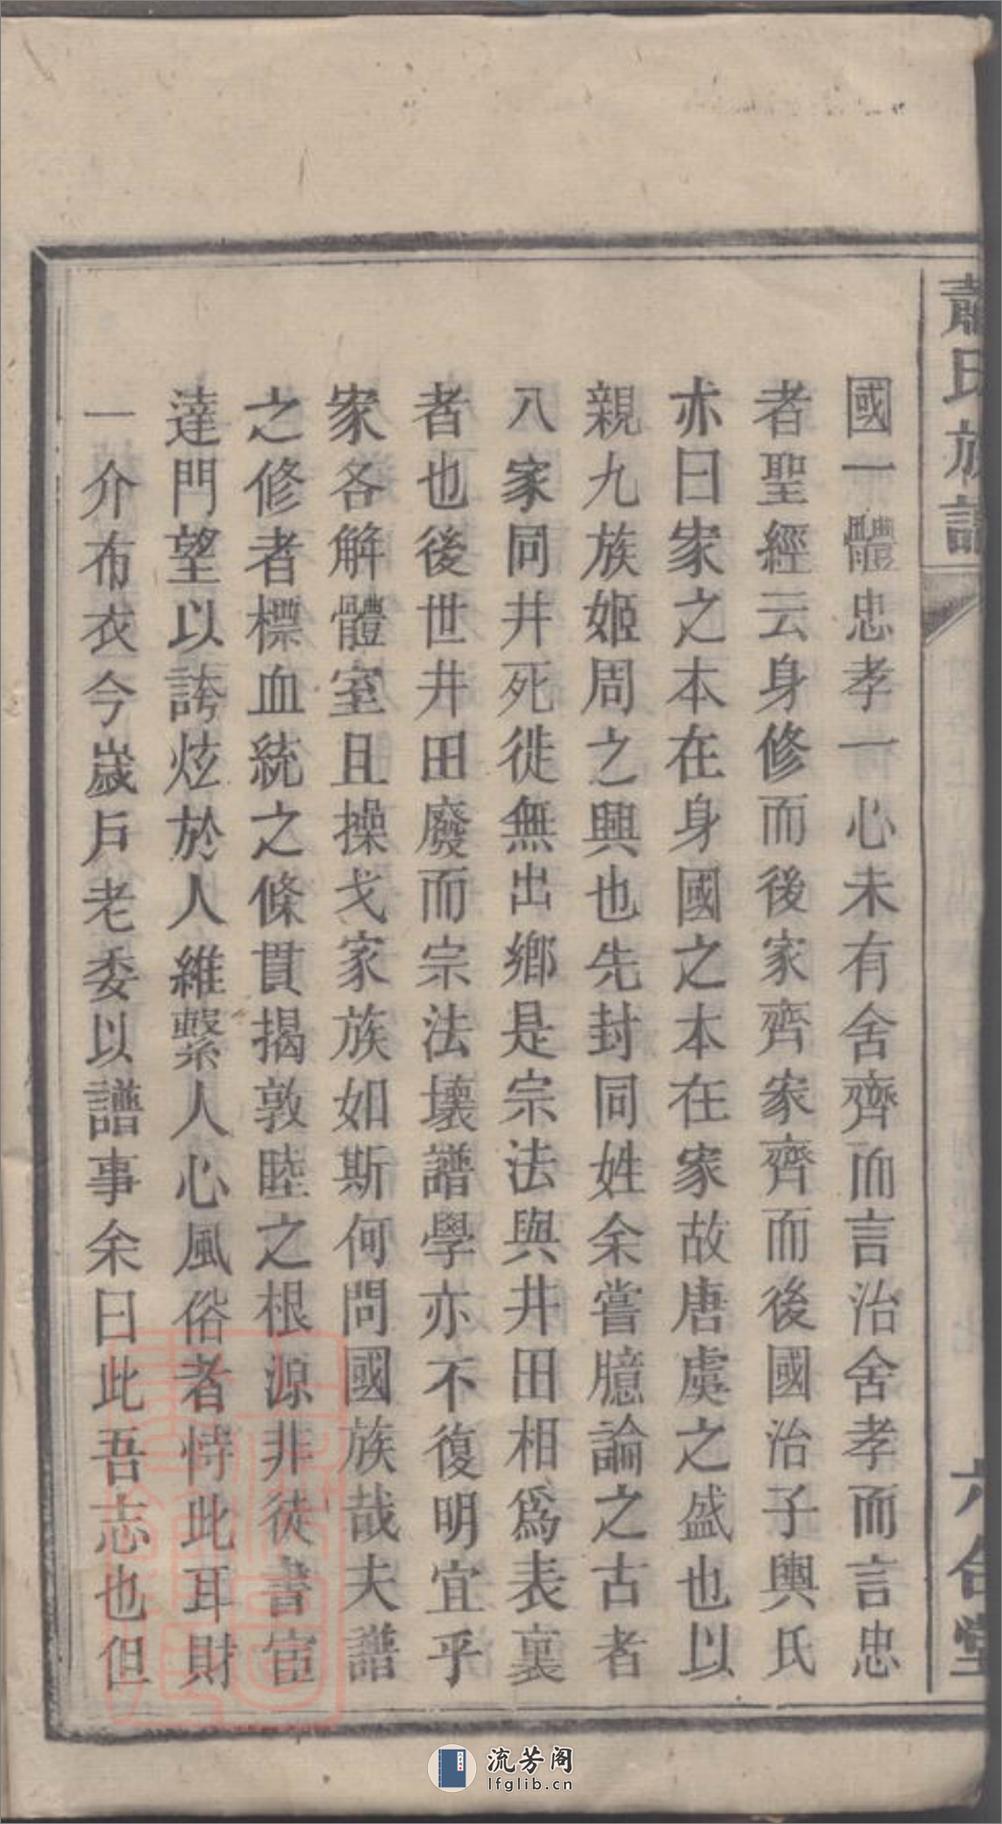 蕭氏族譜
六合堂
國一體忠孝一心未有舍齊而言治舍孝而言忠
者聖經云身修而後家齊家齊而後國治子輿氏
亦曰家之本在身國之本在家故唐虞之盛也以
親九族姬周之興也先封同姓余嘗臆論之古者
八家同井死徙無出鄉是宗法與井田相為表裏
者也後世井田廢而宗法壞譜學亦不復明宜乎
家各解體室且操戈家族如斯何問國族哉夫譜
之修者標血統之條貫揭敦睦之根源非徒書宦
達門望以誇炫於人維繫人心風俗者恃此耳財
一介布衣今歲戶老委以譜事余曰此吾志也但
流芳阁
lfglib.cn